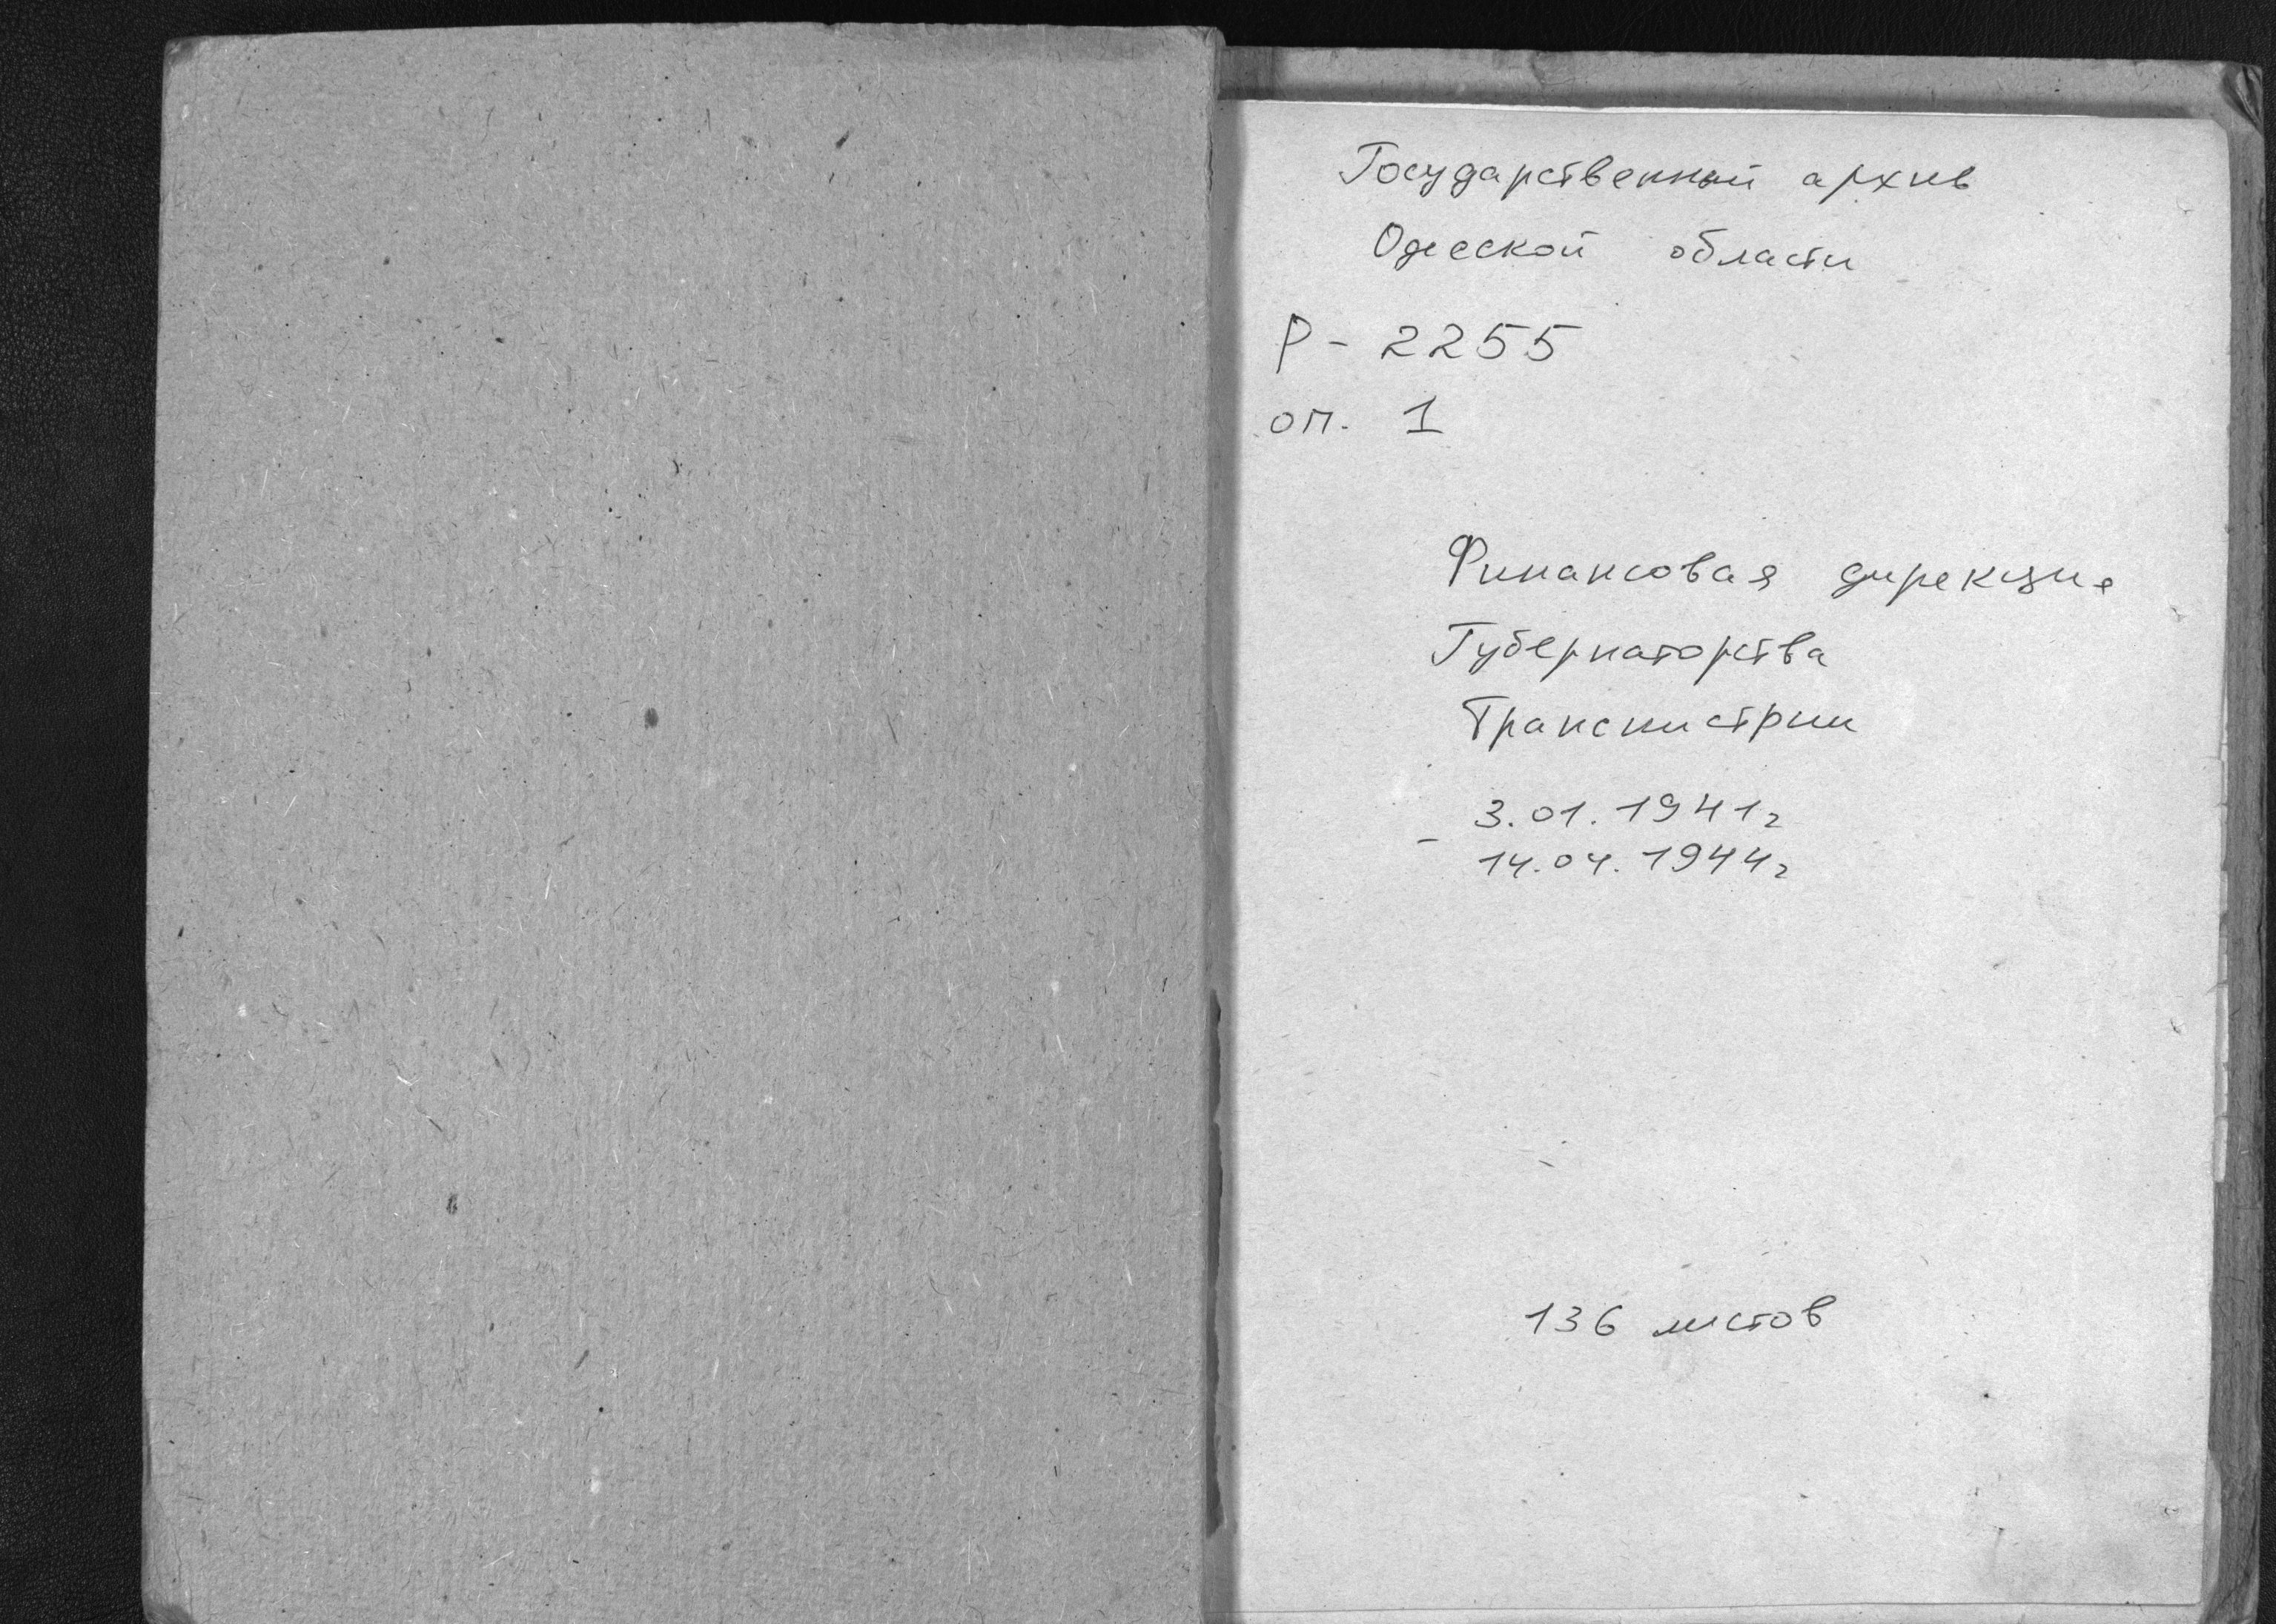 Государственный архив
Одесской области
Р - 2255
оп. 1
Финансовая дирекция
Губернаторства
Транснистрии
3.01.1941г
-
14.04.1944г
136 листов